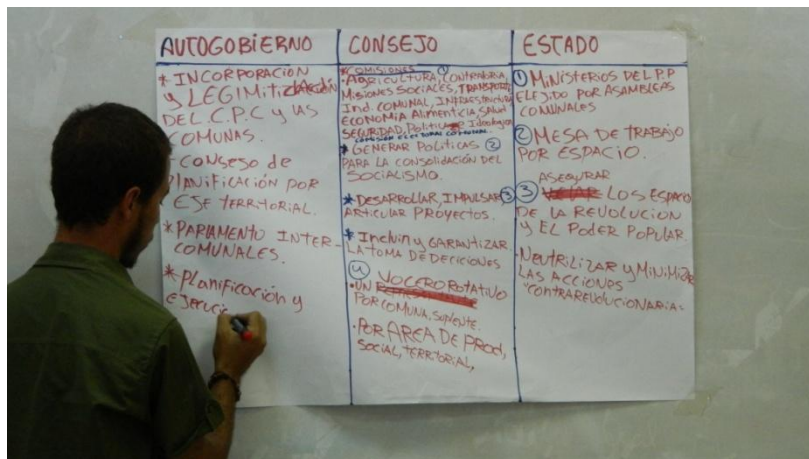 AUTOGOBIERNO
* INCORPORACIÓN
y LEGIMITIZACIÓN
DEL C.P.C y LAS
COMUNAS.
- CONSEJO de
PLANIFICACIÓN POR
EJE TERRITORIAL.
* PARLAMENTO INTER-
COMUNALES.
* Planificación y
ejecuci
CONSEJO
* COMISIONES ①
- AGRICULTURA, CONTRALORIA,
MISIONES SOCIALES, TRANSPORTE,
Ind. COMUNAL, INFRAESTRUCTURA
ECONOMÍA Alimenticia, SALUD
SEGURIDAD, Política Ideologica
COMISIÓN ELECTORAL COMUNAL.
* GENERAR POLÍTICAS ②
PARA LA CONSOLIDACIÓN DEL
SOCIALISMO.
* DESARROLLAR, IMPULSAR ③
ARTICULAR PROYECTOS.
* Incluin y GARANTIZAR
LA TOMA DE DECICIONES
④ VOCERO ROTATIVO
• UN
POR COMUNA. SUPLENTE.
• POR AREA DE PROD,
SOCIAL, TERRITORIAL,
ESTADO
① MINISTERIOS DEL P.P
ELEJIDO POR ASAMBLEAS
COMUNALES
② MESA DE TRABAJO
POR ESPACIO.
ASEGURAR
③ VELAR LOS ESPACIO
DE LA REVOLUCION
y EL PODER POPULAR.
- NEUTRILIZAR y MINIMIZAR
LAS ACCIONES
"CONTRAREVOLUCIONARIA"